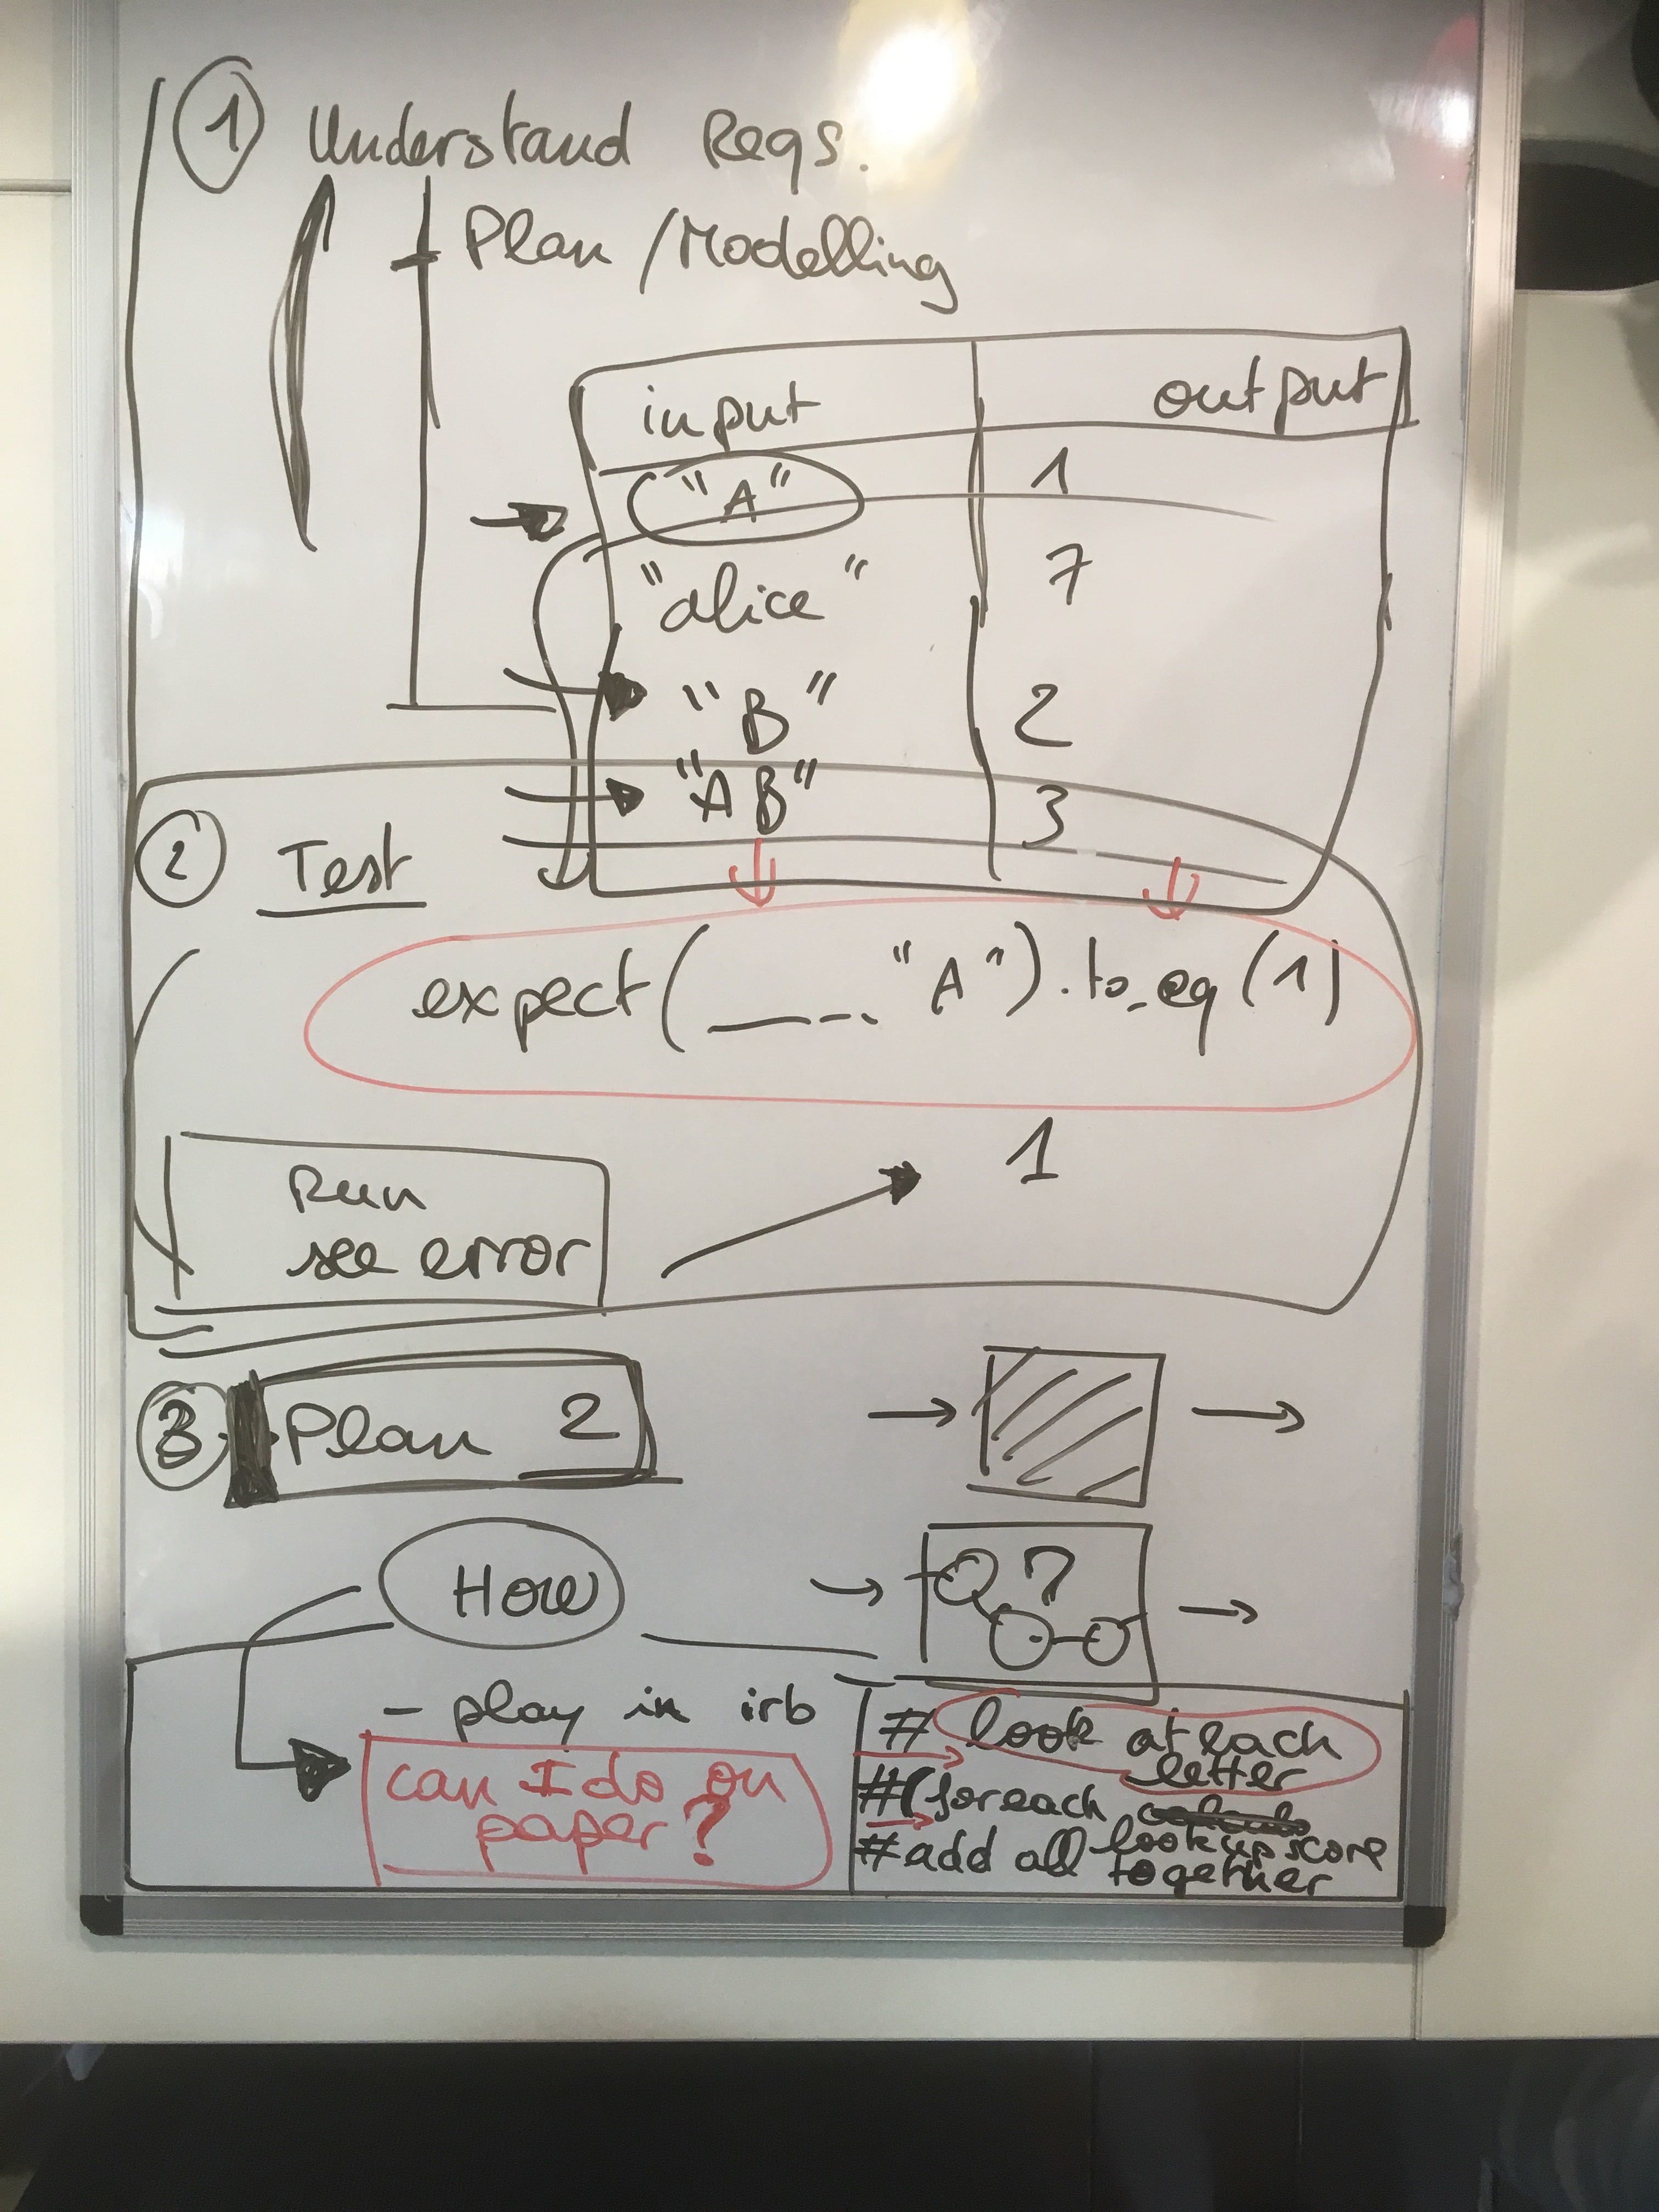 1 Understand Reqs.
- Plan / Modelling
input output
"A" 1
"alice" 7
"B" 2
"AB" 3
2 Test
expect(___--- "A").to_eq(1)
1
Run
see error
3 Plan 2
How
?
- play in irb
can I do on
paper?
# look at each
letter
# (foreach
lookup score
# add all together